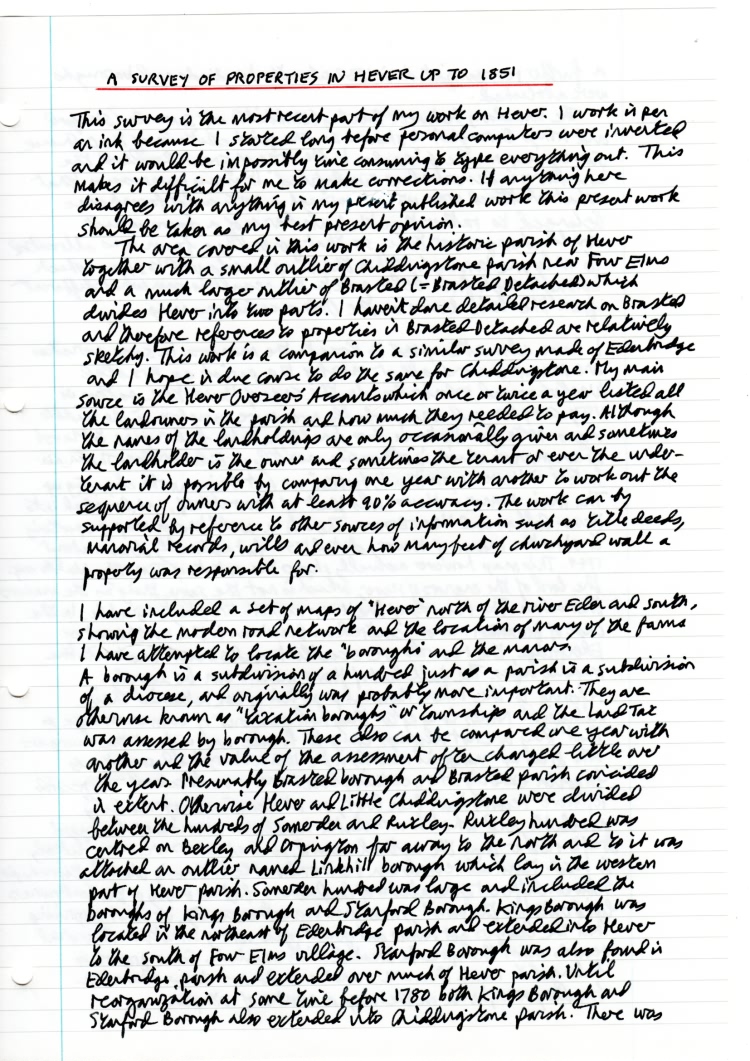 A SURVEY OF PROPERTIES IN HEVER UP TO 1851
This survey is the most recent part of my work on Hever. I work in pen
an ink because I started long before personal computers were invented
and it would be impossibly time consuming to type everything out. This
makes it difficult for me to make corrections. If anything here
disagrees with anything in my present published work this present work
should be taken as my best present opinion.
The area covered in this work is the historic parish of Hever
together with a small outlier of Chiddingstone parish near Four Elms
and a much larger outlier of Brasted (= Brasted Detached) which
divides Hever into two parts. I haven't done detailed research on Brasted
and therefore references to properties in Brasted Detached are relatively
sketchy. This work is a companion to a similar survey made of Edenbridge
and I hope in due course to do the same for Chiddingstone. My main
source is the Hever Overseers' Accounts which once or twice a year listed all
the landowners in the parish and how much they needed to pay. Although
the names of the landholdings are only occasionally given and sometimes
the landholder is the owner and sometimes the tenant or even the under-
tenant it is possible by comparing one year with another to work out the
sequence of owners with at least 90% accuracy. The work can by
supported by reference to other sources of information such as title deeds,
manorial records, wills and even how many feet of churchyard wall a
property was responsible for.
I have included a set of maps of "Hever" north of the river Eden and south,
showing the modern road network and the location of many of the farms
I have attempted to locate the "boroughs" and the manors.
A borough is a subdivision of a hundred just as a parish is a subdivision
of a diocese, and originally was probably more important. They are
otherwise known as "taxation boroughs" or townships and the Land Tax
was assessed by borough. These also can be compared one year with
another and the value of the assessment often changed little over
the years. Presumably Brasted borough and Brasted parish coincided
in extent. Otherwise Hever and Little Chiddingstone were divided
between the hundreds of Somerden and Ruxley. Ruxley hundred was
centred on Bexley and Orpington far away to the north and to it was
attached an outlier named Linkhill borough which lay in the western
part of Hever parish. Somerden hundred was large and included the
boroughs of Kings Borough and Stanford Borough. Kings Borough was
located in the northeast of Edenbridge parish and extended into Hever
to the south of Four Elms village. Stanford Borough was also found in
Edenbridge parish and extended over much of Hever parish. Until
reorganization at some time before 1780 both Kings Borough and
Stanford Borough also extended into Chiddingstone parish. There was